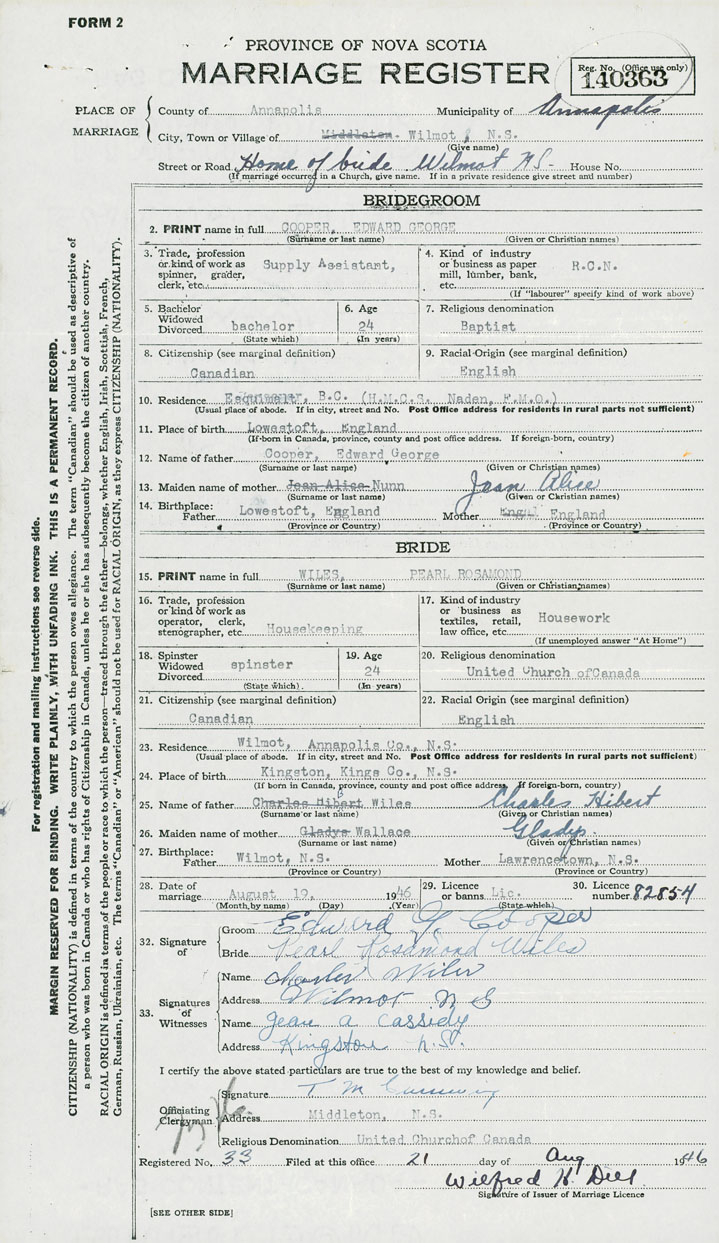 FORM 2
PROVINCE OF NOVA SCOTIA
MARRIAGE REGISTER
Reg. No. (Office use only)
140363
PLACE OF MARRIAGE
County of Annapolis Municipality of Annapolis
City, Town or Village of Middleton. Wilmot, N.S.
(Give name)
Street or Road Home of bride Wilmot NS- House No.
(If marriage occurred in a Church, give name. If in a private residence give street and number)
BRIDEGROOM
2. PRINT name in full COOPER, EDWARD GEORGE
(Surname or last name) (Given or Christian names)
3. Trade, profession or kind of work as spinner, grader, clerk, etc. Supply Assistant,
4. Kind of industry or business as paper mill, lumber, bank, etc. R.C.N.
(If "labourer" specify kind of work above)
5. Bachelor Widowed Divorced bachelor
(State which)
6. Age 24
(In years)
7. Religious denomination
Baptist
8. Citizenship (see marginal definition)
Canadian
9. Racial Origin (see marginal definition)
English
10. Residence Esquimalt, B.C. (H.M.C.S. Naden, F.M.O.)
(Usual place of abode. If in city, street and No. Post Office address for residents in rural parts not sufficient)
11. Place of birth Lowestoft, England
(If born in Canada, province, county and post office address. If foreign-born, country)
12. Name of father Cooper, Edward George
(Surname or last name) (Given or Christian names)
13. Maiden name of mother Jean Alice Nunn Jean Alice
(Surname or last name) (Given or Christian names)
14. Birthplace: Father Lowestoft, England Mother England
(Province or Country) (Province or Country)
BRIDE
15. PRINT name in full WILES, PEARL ROSAMOND
(Surname or last name) (Given or Christian names)
16. Trade, profession or kind of work as operator, clerk, stenographer, etc. Housekeeping
17. Kind of industry or business as textiles, retail, law office, etc. Housework
(If unemployed answer "At Home")
18. Spinster Widowed Divorced spinster
(State which)
19. Age 24
(In years)
20. Religious denomination
United Church ofCanada
21. Citizenship (see marginal definition)
Canadian
22. Racial Origin (see marginal definition)
English
23. Residence Wilmot, Annapolis Co., N.S.
(Usual place of abode. If in city, street and No. Post Office address for residents in rural parts not sufficient)
24. Place of birth Kingston, Kings Co., N.S.
(If born in Canada, province, county and post office address. If foreign-born, country)
25. Name of father Charles Hibert Wiles Charles Hibert
(Surname or last name) (Given or Christian names)
26. Maiden name of mother Gladys Wallace Gladys.
(Surname or last name) (Given or Christian names)
27. Birthplace: Father Wilmot, N.S. Mother Lawrencetown, N.S.
(Province or Country) (Province or Country)
28. Date of marriage August 19, 1946
(Month by name) (Day) (Year)
29. Licence or banns Lic.
(State which)
30. Licence number 82854
32. Signature of
Groom Edward G. Cooper
Bride Pearl Rosamond Wiles
33. Signatures of Witnesses
Name Charles Wiles
Address Wilmot N S
Name Jean A Cassidy
Address Kingston N.S.
I certify the above stated particulars are true to the best of my knowledge and belief.
Officiating Clergyman
Signature T M
Address Middleton, N.S.
Religious Denomination United Churchof Canada
Registered No. 33 Filed at this office 21 day of Aug 1946
Wilfred H. Dill
Signature of Issuer of Marriage Licence
[SEE OTHER SIDE]
For registration and mailing instructions see reverse side.
MARGIN RESERVED FOR BINDING. WRITE PLAINLY, WITH UNFADING INK. THIS IS A PERMANENT RECORD.
CITIZENSHIP (NATIONALITY) is defined in terms of the country to which the person owes allegiance. The term "Canadian" should be used as descriptive of
a person who was born in Canada or who has rights of Citizenship in Canada, unless he or she has subsequently become the citizen of another country.
RACIAL ORIGIN is defined in terms of the people or race to which the person—traced through the father—belongs, whether English, Irish, Scottish, French,
German, Russian, Ukrainian, etc. The terms "Canadian" or "American" should not be used for RACIAL ORIGIN, as they express CITIZENSHIP (NATIONALITY).